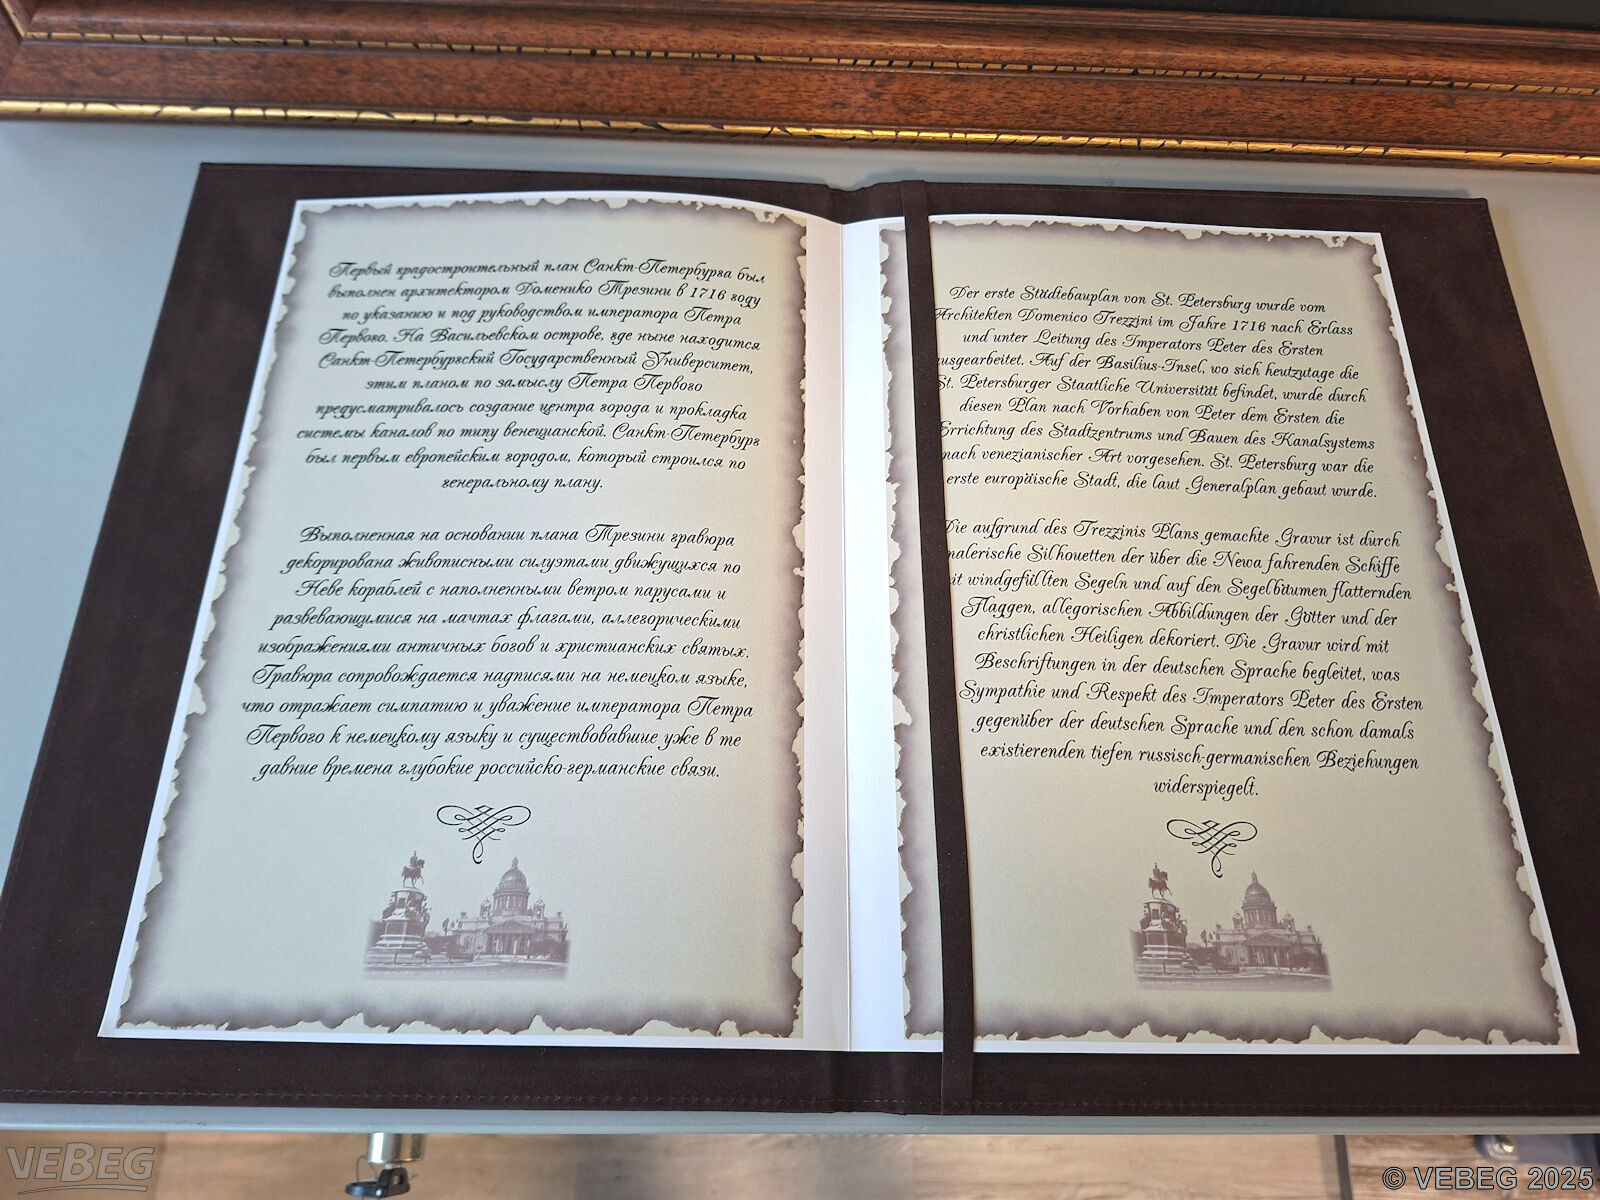 Первый градостроительный план Санкт-Петербурга был
выполнен архитектором Доменико Трезини в 1716 году
по указанию и под руководством императора Петра
Первого. На Васильевском острове, где ныне находится
Санкт-Петербургский Государственный Университет,
этим планом по замыслу Петра Первого
предусматривалось создание центра города и прокладка
системы каналов по типу венецианской. Санкт-Петербург
был первым европейским городом, который строился по
генеральному плану.
Выполненная на основании плана Трезини гравюра
декорирована живописными силуэтами движущихся по
Неве кораблей с наполненными ветром парусами и
развевающимися на мачтах флагами, аллегорическими
изображениями античных богов и христианских святых.
Гравюра сопровождается надписями на немецком языке,
что отражает симпатию и уважение императора Петра
Первого к немецкому языку и существовавшие уже в те
давние времена глубокие российско-германские связи.
Der erste Städtebauplan von St. Petersburg wurde vom
Architekten Domenico Trezzini im Jahre 1716 nach Erlass
und unter Leitung des Imperators Peter des Ersten
ausgearbeitet. Auf der Basilius-Insel, wo sich heutzutage die
St. Petersburger Staatliche Universität befindet, wurde durch
diesen Plan nach Vorhaben von Peter dem Ersten die
Errichtung des Stadtzentrums und Bauen des Kanalsystems
nach venezianischer Art vorgesehen. St. Petersburg war die
erste europäische Stadt, die laut Generalplan gebaut wurde.
Die aufgrund des Trezzinis Plans gemachte Gravur ist durch
malerische Silhouetten der über die Newa fahrenden Schiffe
it windgefüllten Segeln und auf den Segelbäumen flatternden
Flaggen, allegorischen Abbildungen der Götter und der
christlichen Heiligen dekoriert. Die Gravur wird mit
Beschriftungen in der deutschen Sprache begleitet, was
Sympathie und Respekt des Imperators Peter des Ersten
gegenüber der deutschen Sprache und den schon damals
existierenden tiefen russisch-germanischen Beziehungen
widerspiegelt.
VEBEG
© VEBEG 2025